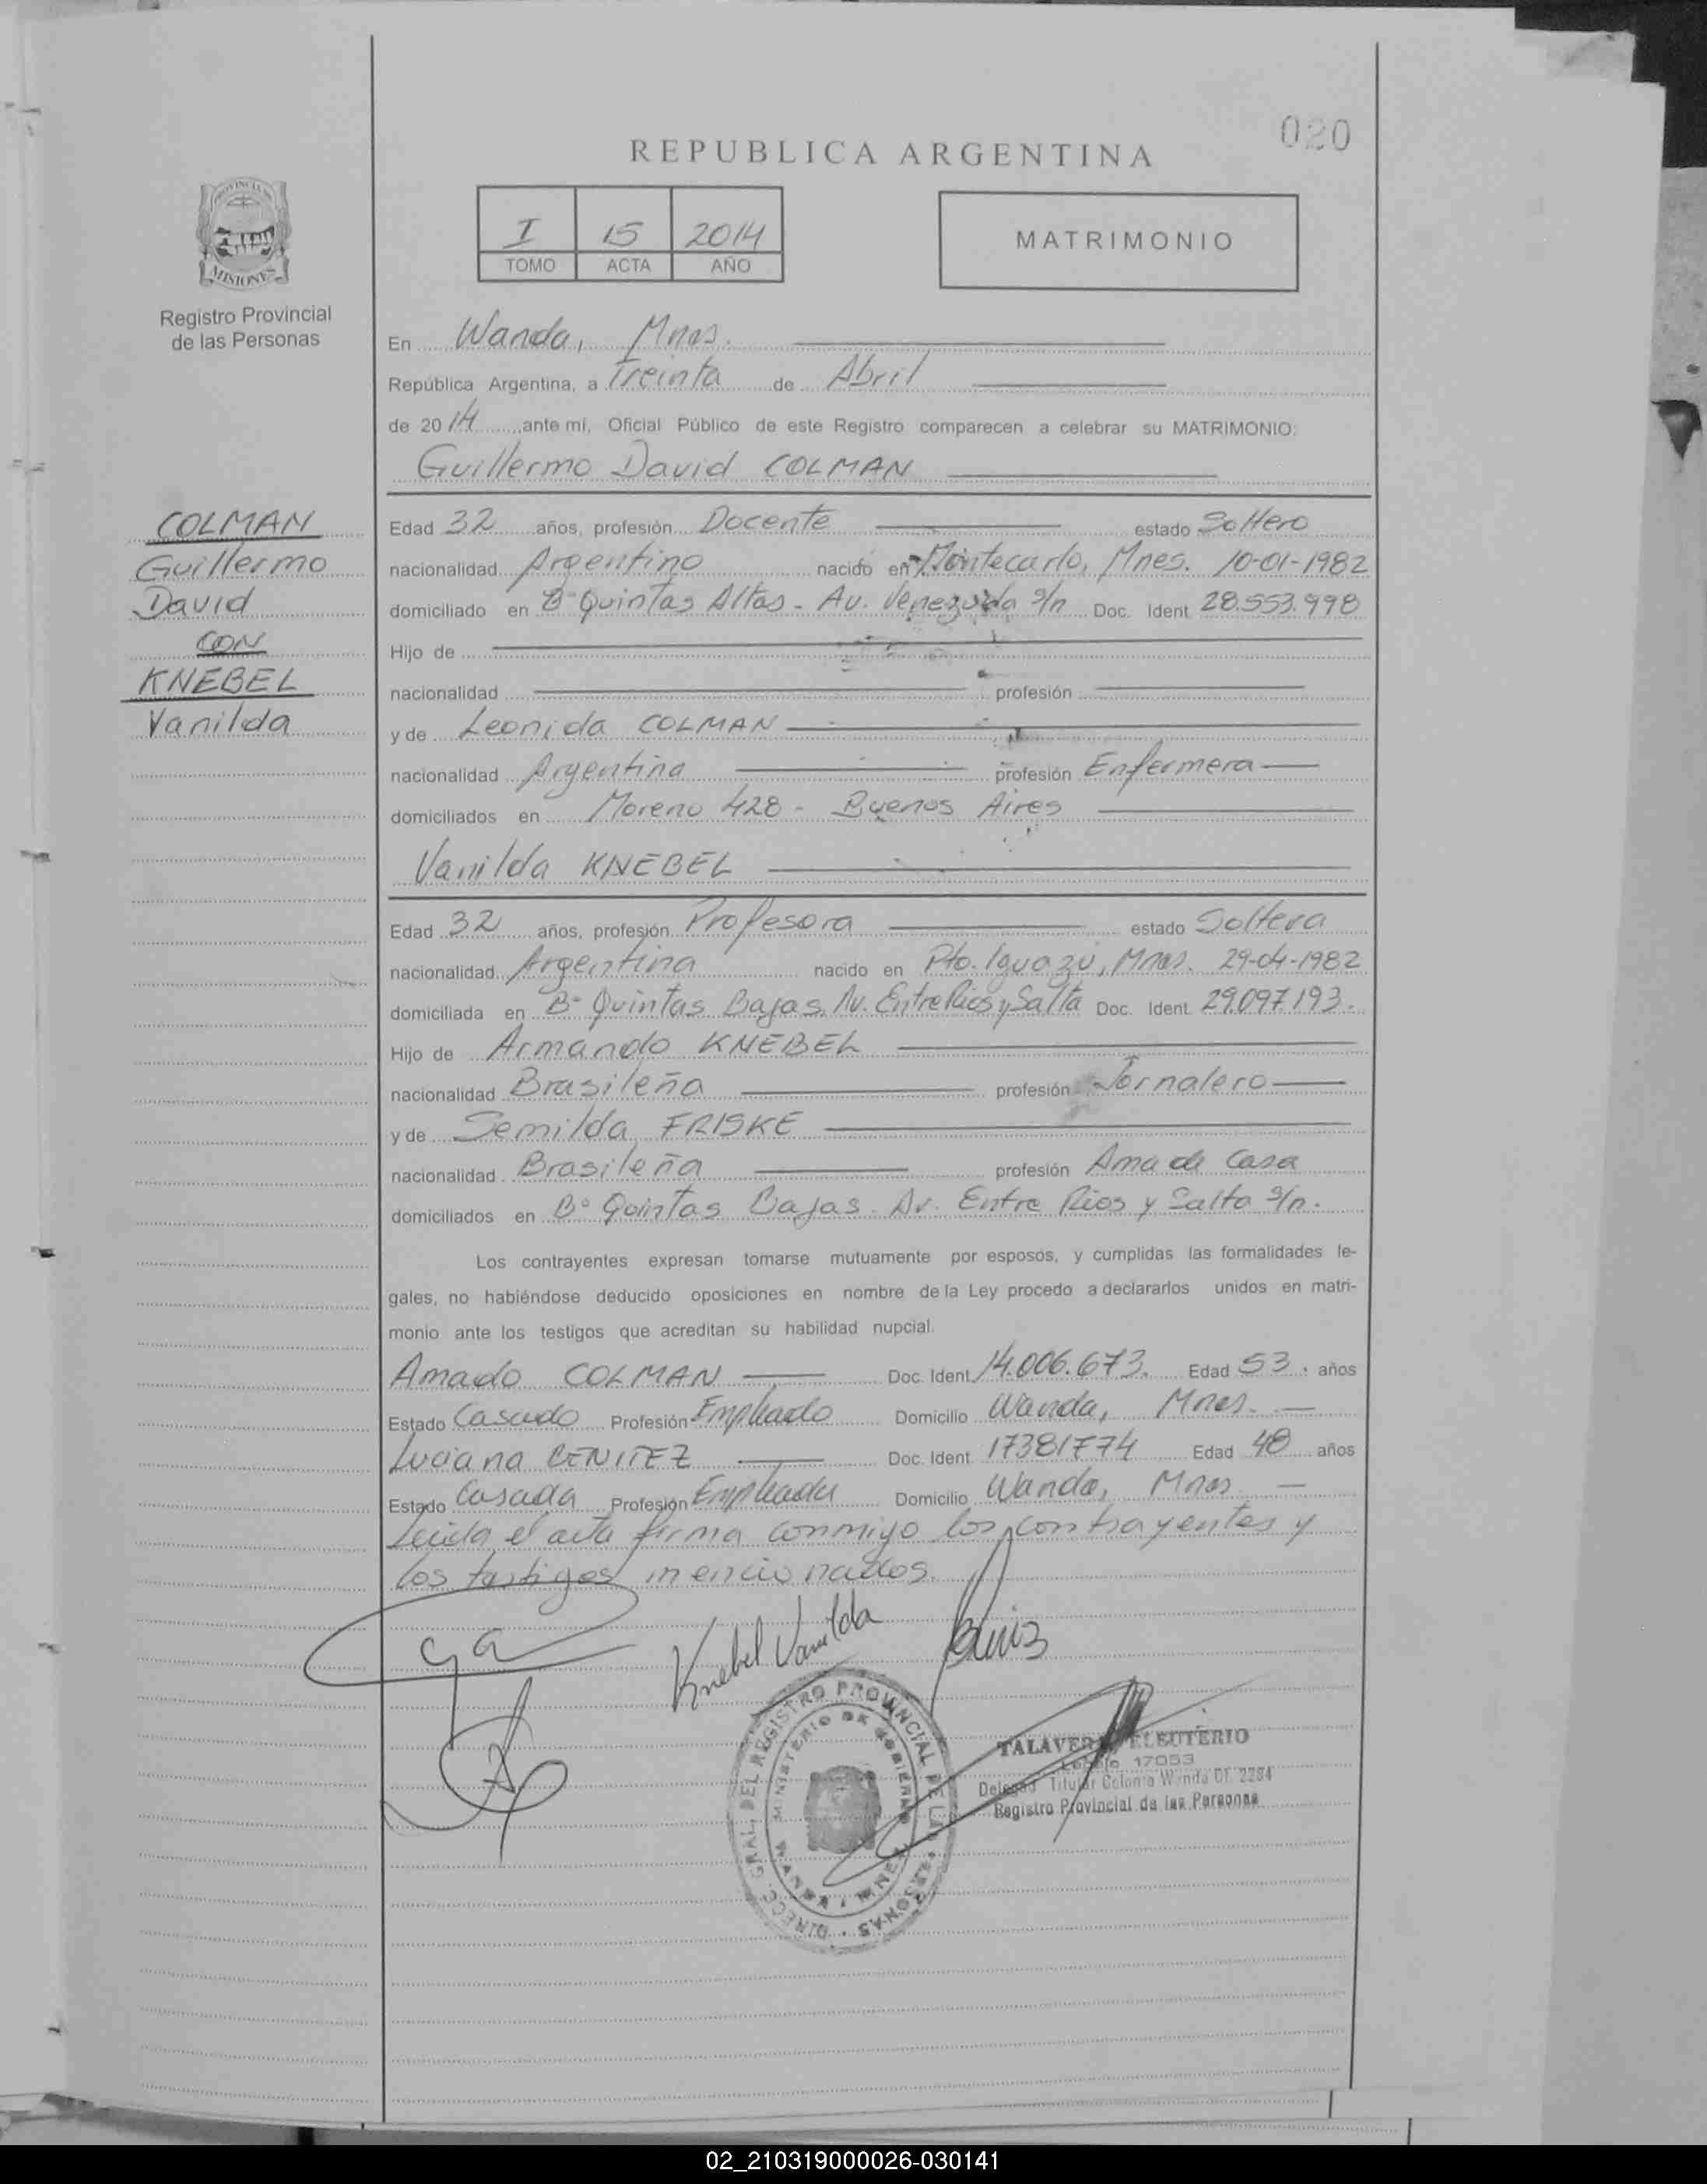 020
REPUBLICA ARGENTINA
I 15 2014
TOMO ACTA AÑO
MATRIMONIO
PROVINCIA DE
MISIONES
Registro Provincial
de las Personas
COLMAN
Guillermo
David
CON
KNEBEL
Vanilda
En Wanda, Mnes.
República Argentina, a Treinta de Abril
de 2014 ante mi, Oficial Público de este Registro comparecen a celebrar su MATRIMONIO:
Guillermo David COLMAN
Edad 32 años, profesión Docente estado Soltero
nacionalidad Argentino nacido en Montecarlo, Mnes. 10-01-1982
domiciliado en B° Quintas Altas - Av. Venezuela s/n Doc. Ident 28.553.998
Hijo de
nacionalidad profesión
y de Leonida COLMAN
nacionalidad Argentina profesión Enfermera
domiciliados en Moreno 428 - Buenos Aires
Vanilda KNEBEL
Edad 32 años, profesión Profesora estado Soltera
nacionalidad Argentina nacido en Pto. Iguazú, Mnes. 29-04-1982
domiciliada en B° Quintas Bajas, Av. Entre Rios y Salta Doc. Ident 29.097.193.
Hijo de Armando KNEBEL
nacionalidad Brasileña profesión Jornalero
y de Semilda FRISKE
nacionalidad Brasileña profesión Ama de Casa
domiciliados en B° Quintas Bajas. Av. Entre Rios y Salta s/n.
Los contrayentes expresan tomarse mutuamente por esposos, y cumplidas las formalidades le-
gales, no habiéndose deducido oposiciones en nombre de la Ley procedo a declararlos unidos en matri-
monio ante los testigos que acreditan su habilidad nupcial.
Amado COLMAN Doc. Ident 14.006.673. Edad 53. años
Estado Casado Profesión Empleado Domicilio Wanda, Mnes.
Luciana BENITEZ Doc. Ident 17381774 Edad 48 años
Estado Casada Profesión Empleada Domicilio Wanda, Mnes
Leida el acta firma conmigo los contrayentes y
los testigos mencionados.
Knebel Vanilda
DIRECC. GRAL. DEL REGISTRO PROVINCIAL DE LAS PERSONAS
MINISTERIO DE GOBIERNO
WANDA - MNES
TALAVERA ELEUTERIO
Legajo 17053
Delegado Titular Colonia Wanda Of. 2284
Registro Provincial de las Personas
02_210319000026-030141